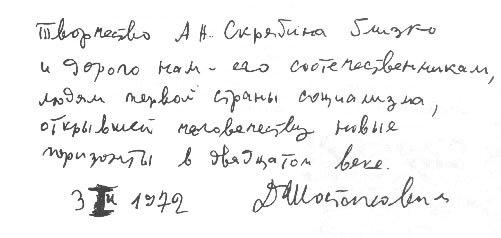 Творчество А.Н. Скрябина близко
и дорого нам - его соотечественникам,
людям первой страны социализма,
открывшей человечеству новые
горизонты в двадцатом веке.
3 1972 ДШостакович